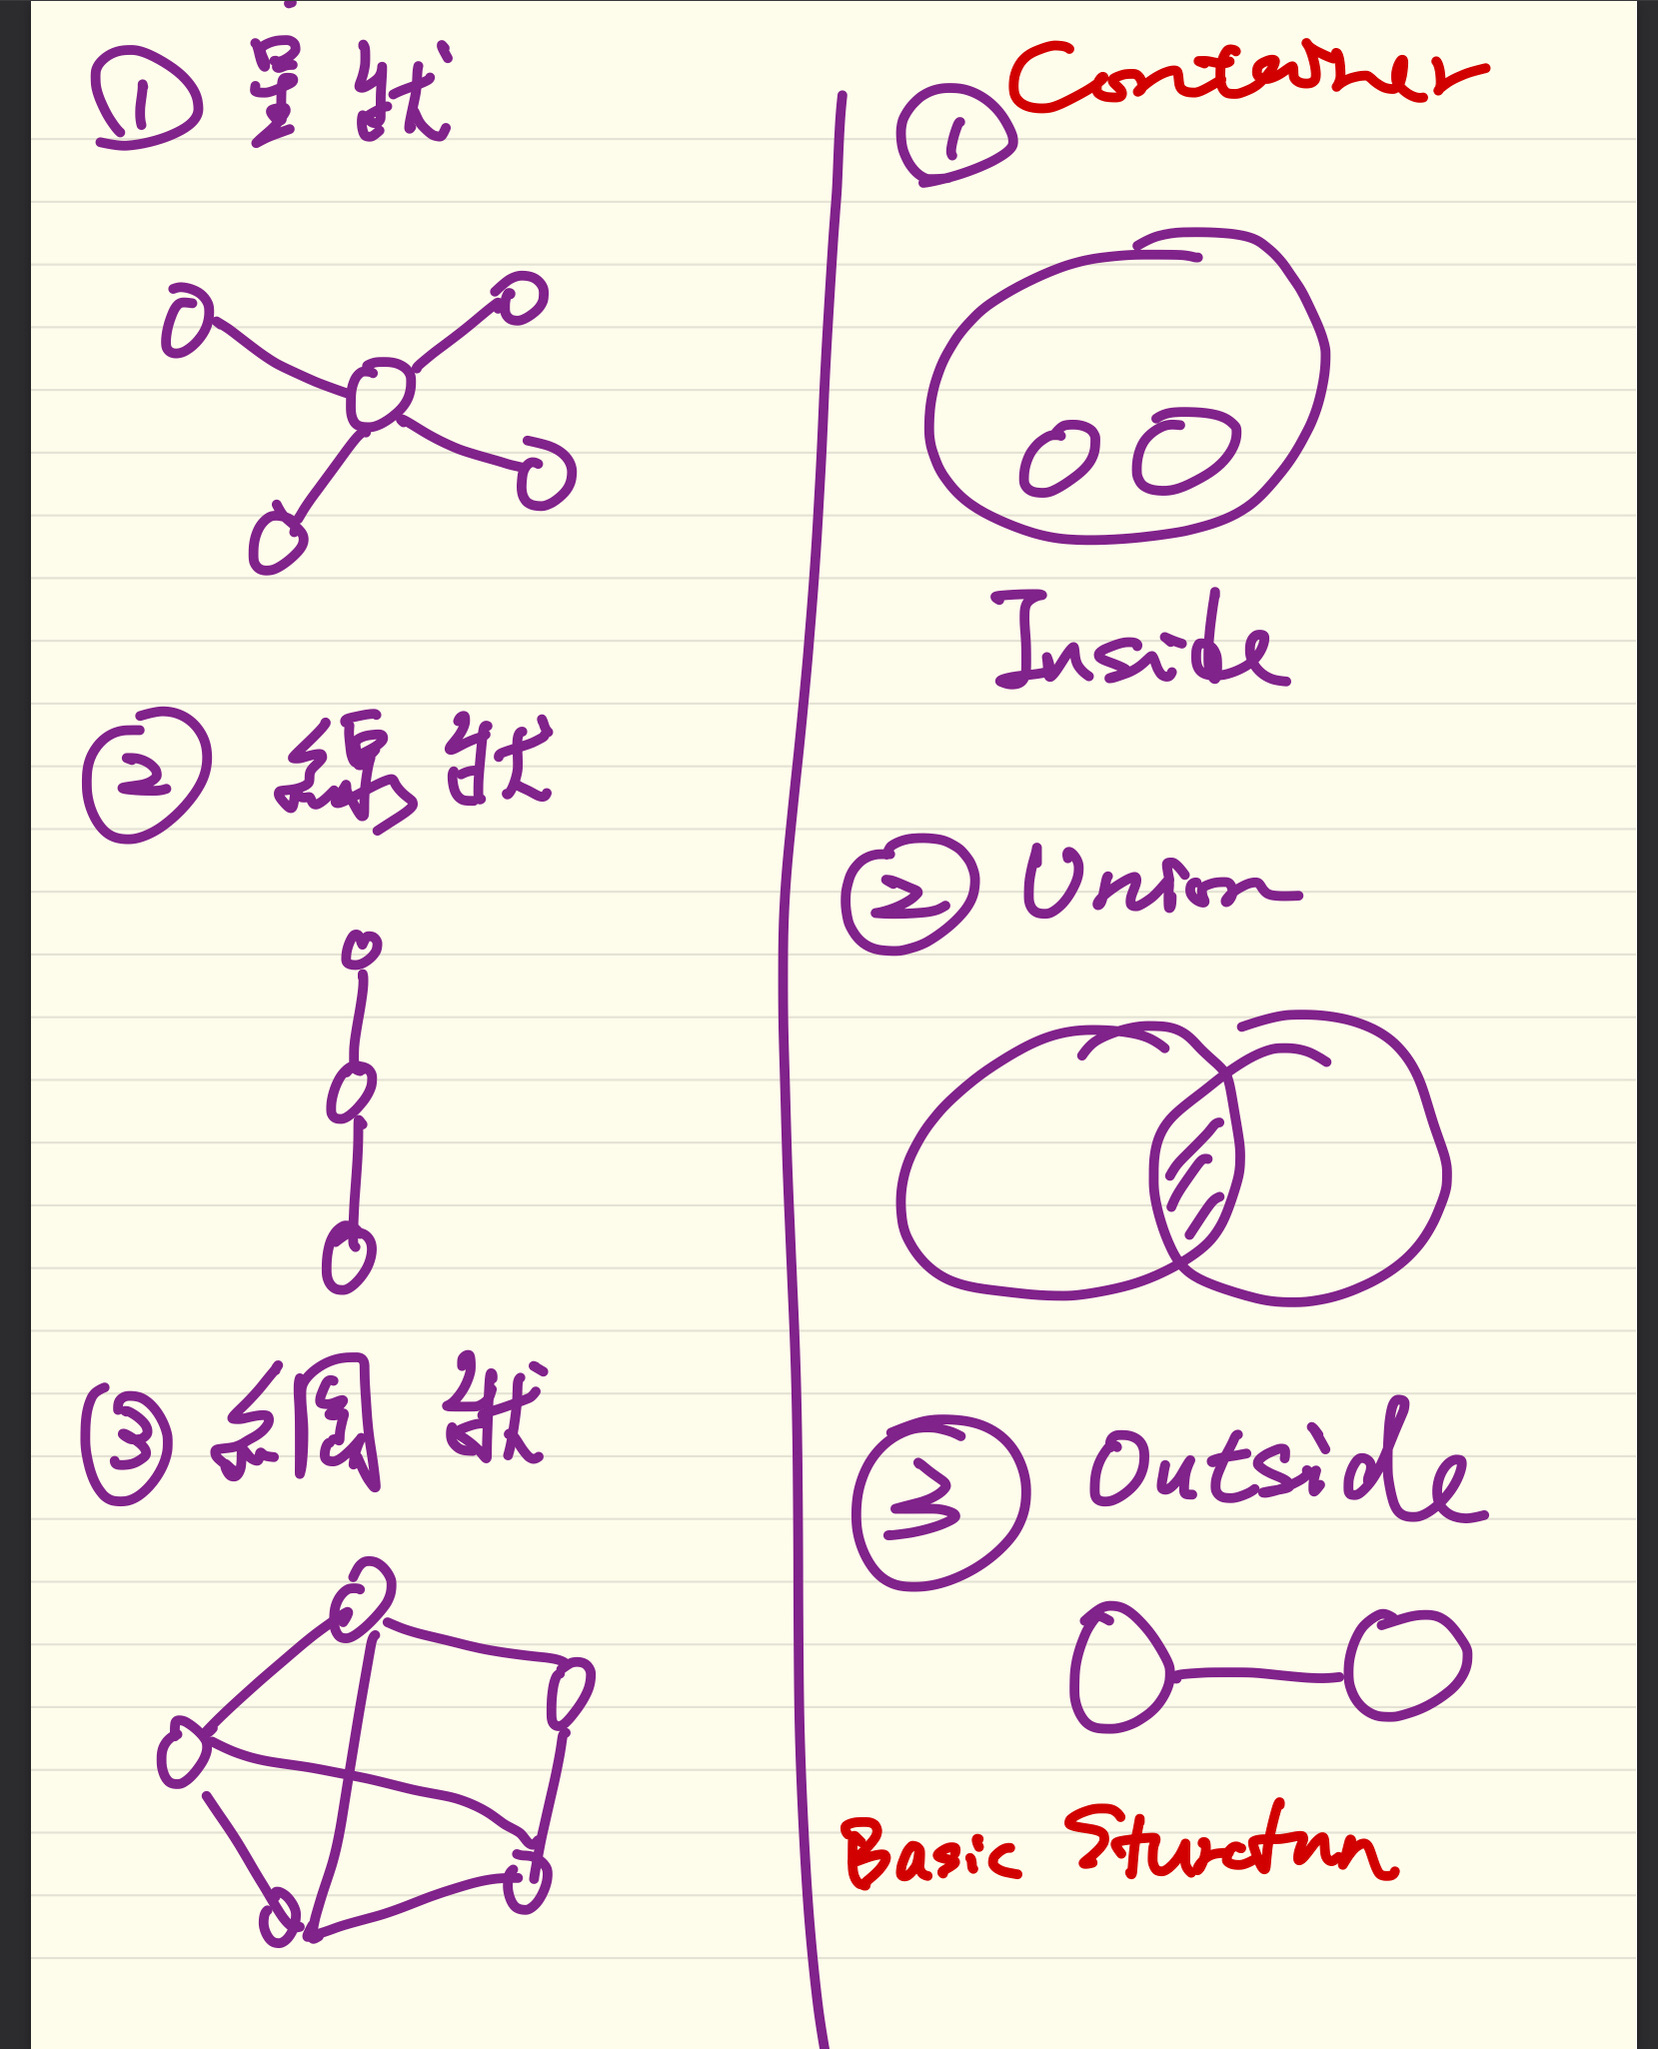 ① 星狀
② 線狀
③ 網狀
Container
①
Inside
② Union
③ Outside
Basic